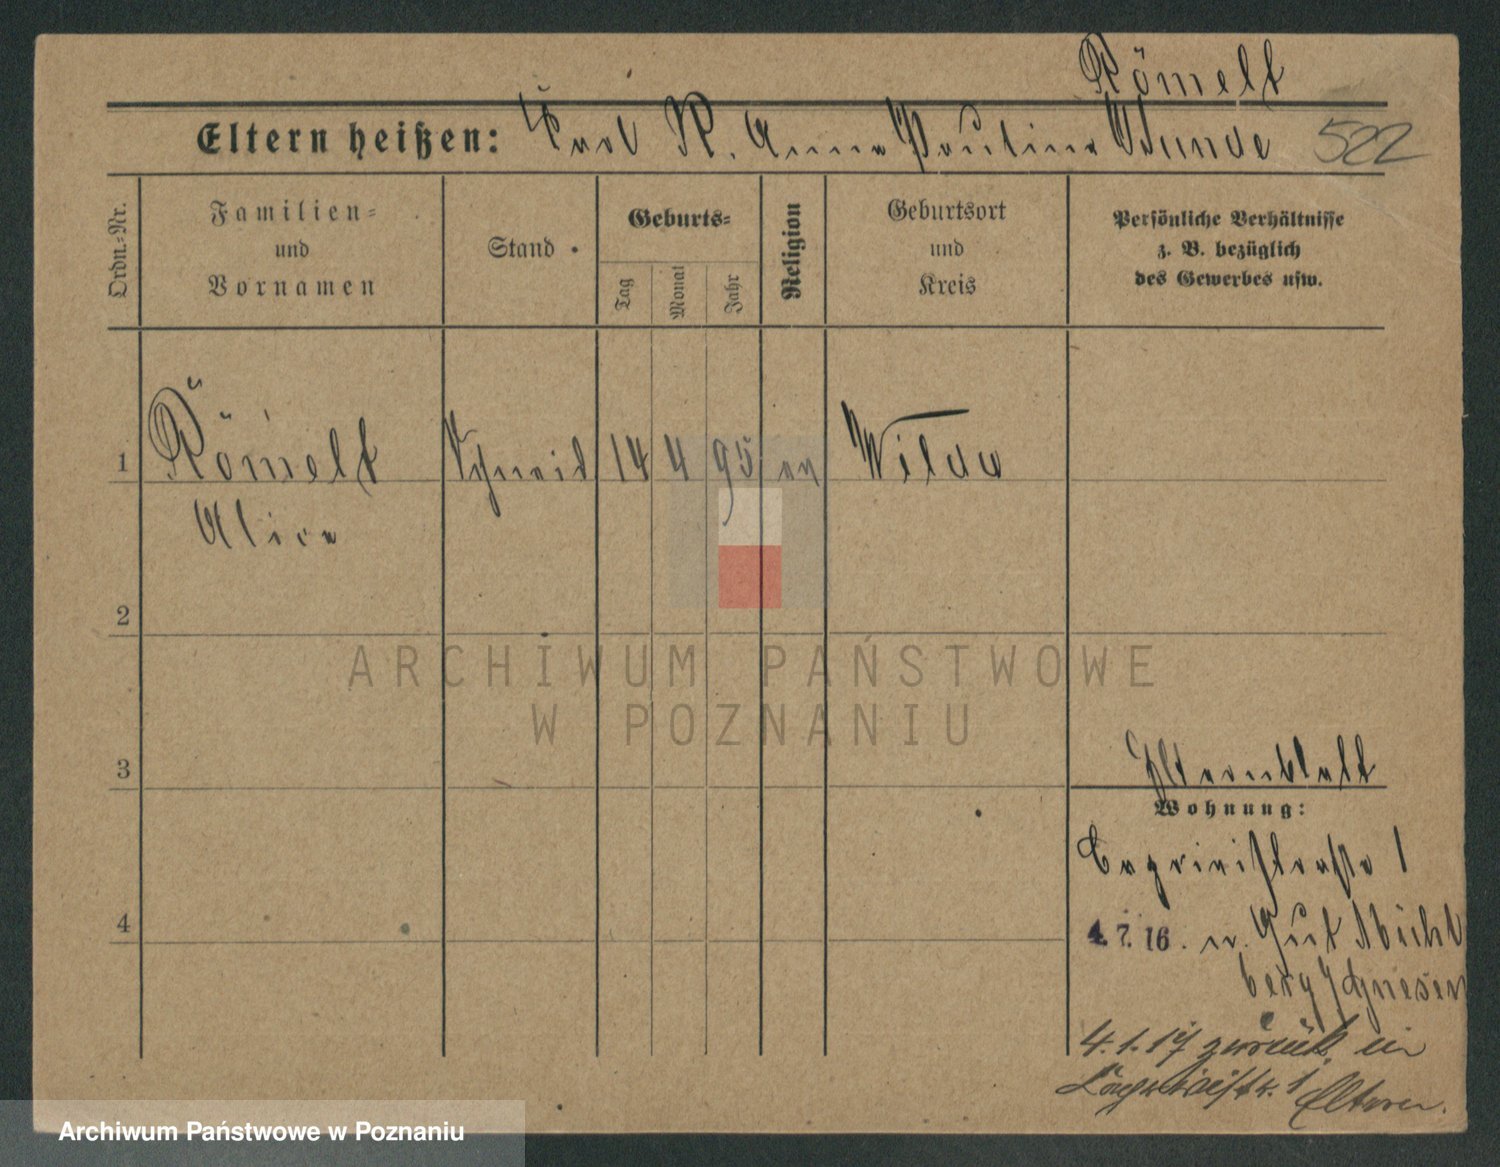 Römelt
Eltern heißen: Carl R. Anna Pauline Wunde 522
Ordn.=Nr.
Familien=
und
Vornamen
Stand
Geburts=
Tag
Monat
Jahr
Religion
Geburtsort
und
Kreis
Persönliche Verhältnisse
z. B. bezüglich
des Gewerbes usw.
1 Römelt Schneid 14 4 95 ev Wilda
Alice
2
ARCHIWUM PAŃSTWOWE
W POZNANIU
3
Elternblatt
Wohnung:
1
4
4.7.16. n. Gut
berg Gnesen
4.1.17 zurück in
1 Eltern.
Archiwum Państwowe w Poznaniu